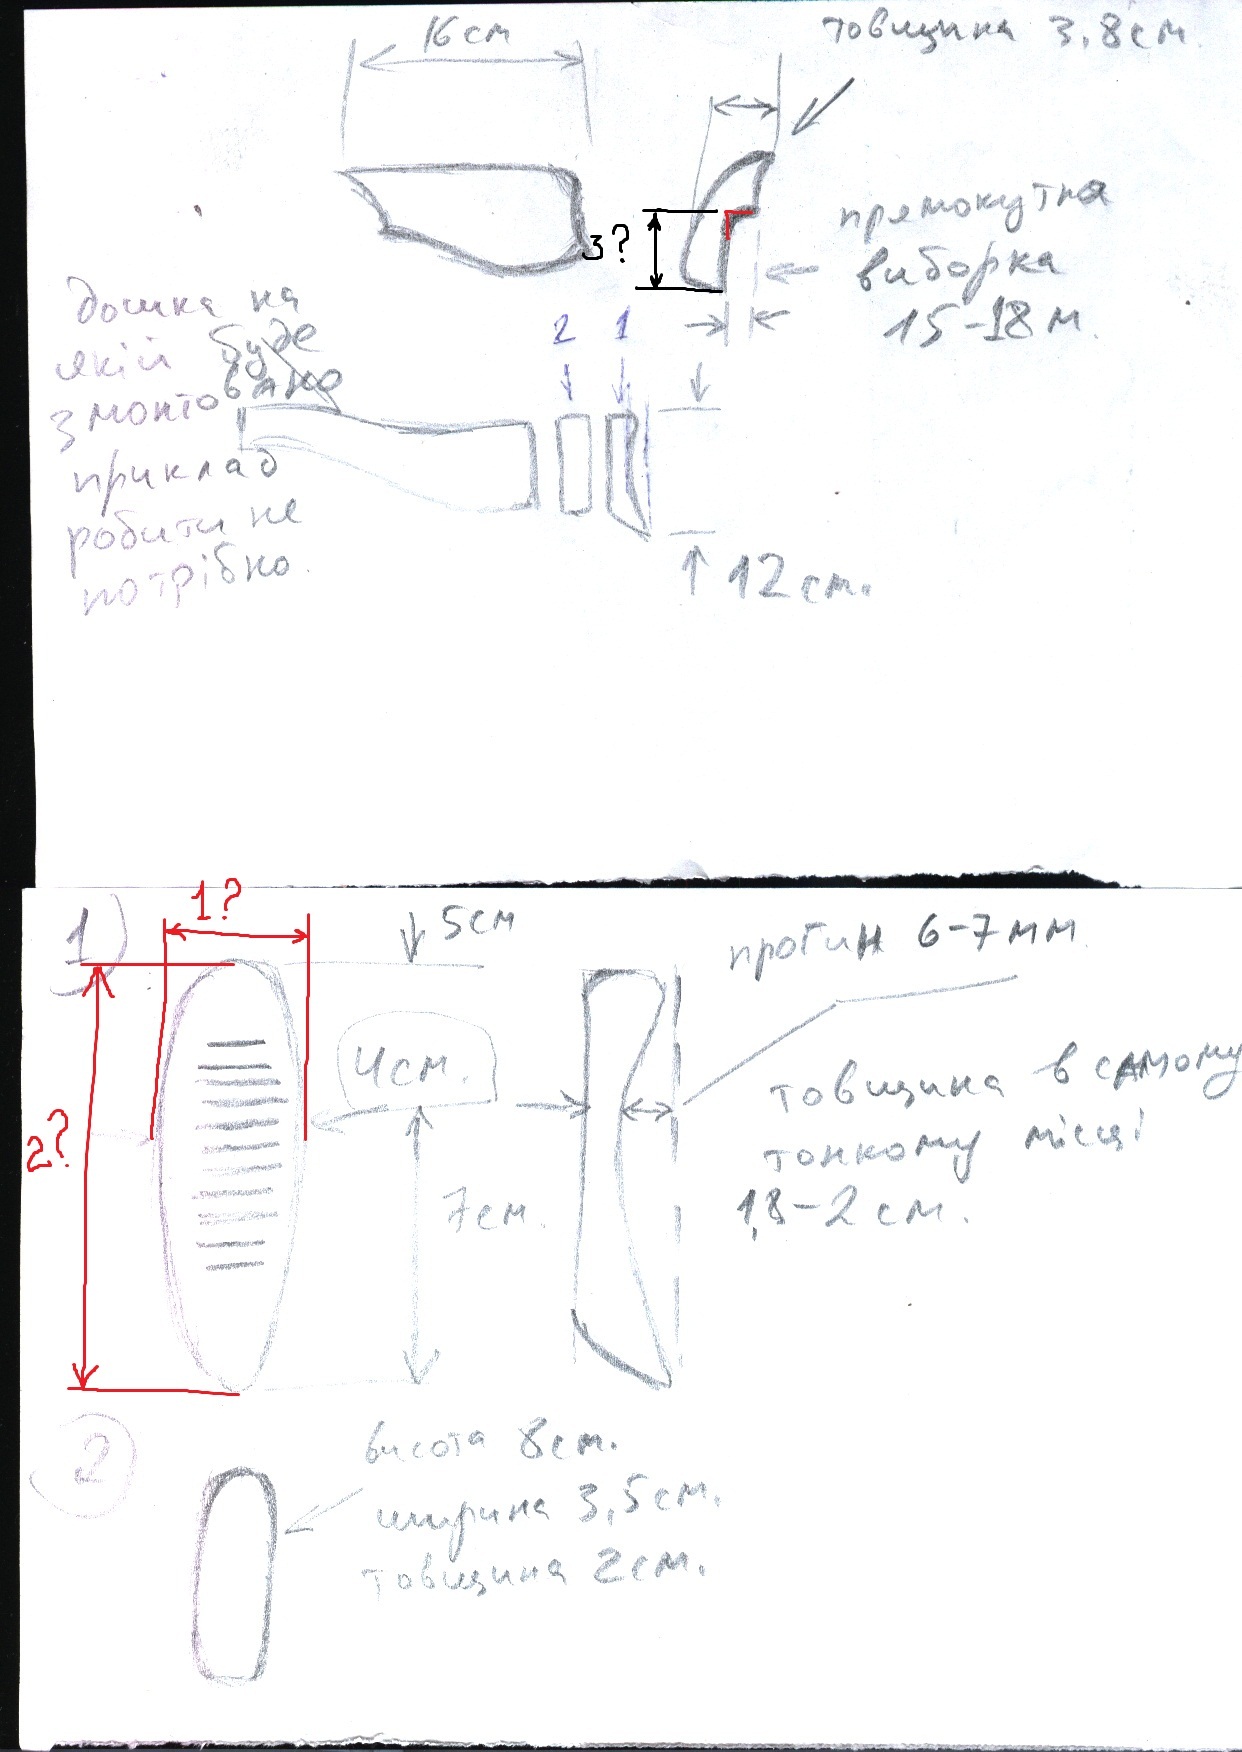 16 см
товщина 3,8 см.
прямокутна
виборка
15-18 м.
3?
дошка на
якій буде
змонтовано
приклад
робити не
потрібно.
2
1
12 см.
1)
1?
5 см
прогин 6-7 мм
4 см.
2?
товщина в самому
тонкому місці
1,8-2 см.
7 см.
2
висота 8 см.
ширина 3,5 см.
товщина 2 см.